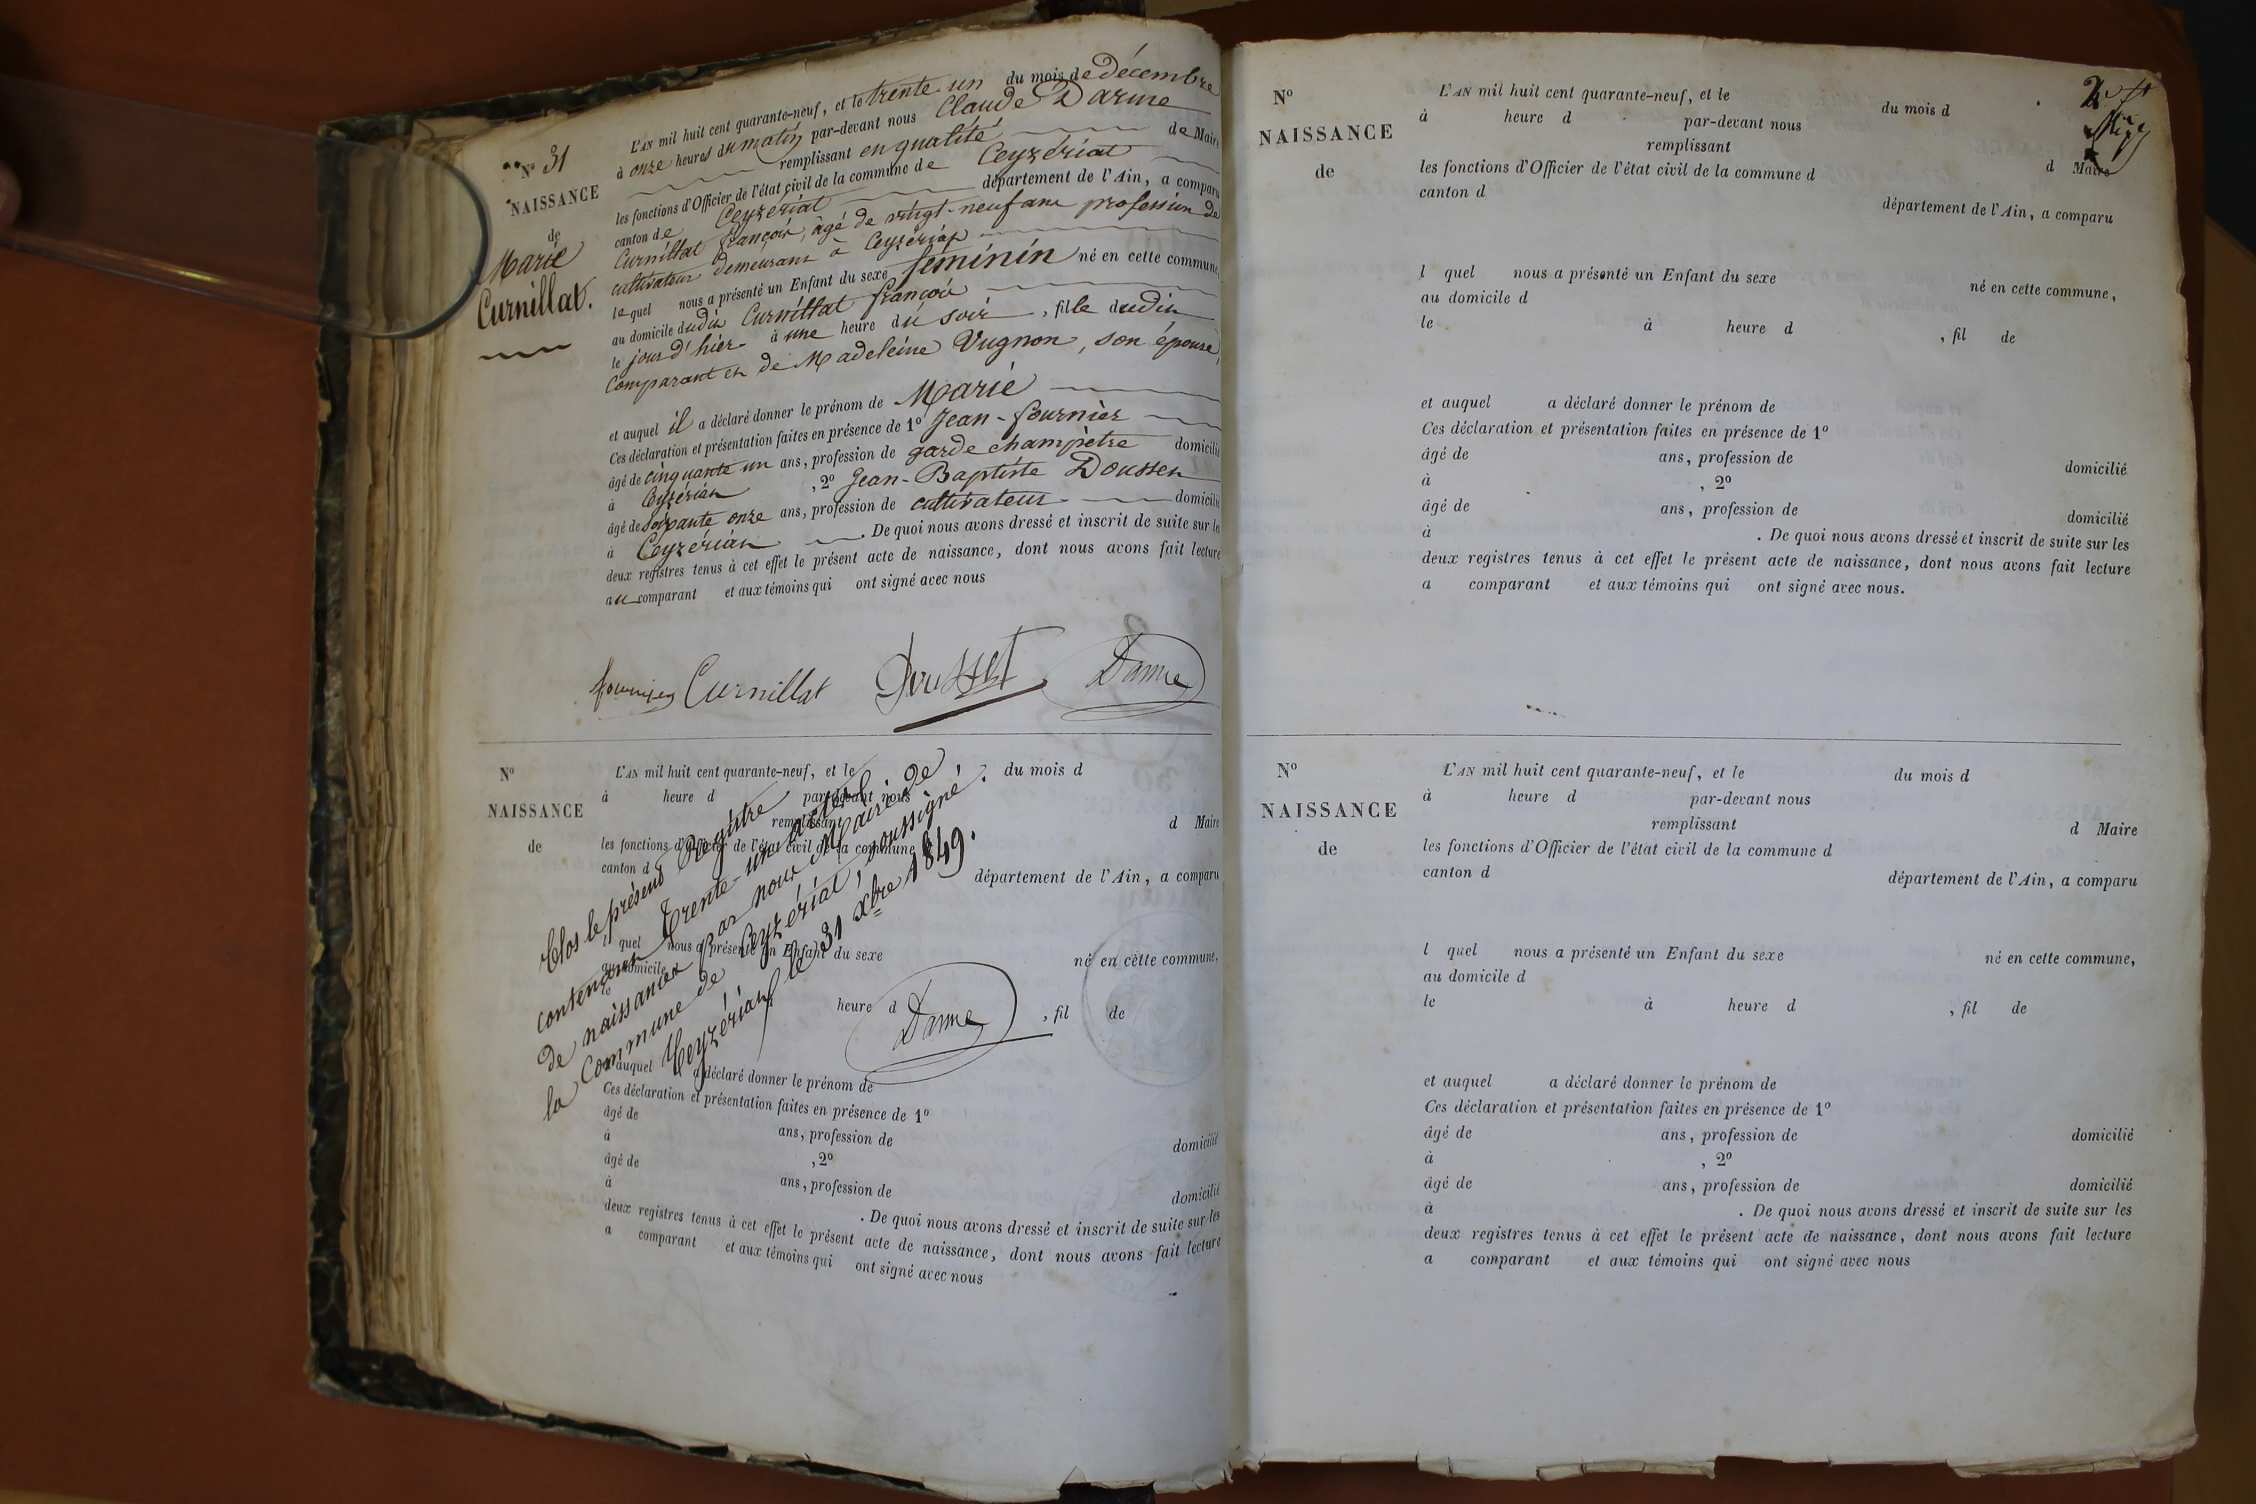 N° 31
NAISSANCE
de
Marie
Curnillat.
L'AN mil huit cent quarante-neuf, et le trente un du mois de décembre
à onze heures du matin par-devant nous Claude Darme
remplissant en qualité de Maire
les fonctions d'Officier de l'état civil de la commune de Ceyzériat
canton de Ceyzériat département de l'Ain, a comparu
Curnillat françois, âgé de vingt-neuf ans profession de
cultivateur demeurant à Ceyzériat
lequel nous a présenté un Enfant du sexe féminin né en cette commune,
au domicile dudit Curnillat françois
le jour d'hier à une heure du soir, fille dudit
Comparant et de Madeleine Vugnon, son épouse,
et auquel il a déclaré donner le prénom de Marie
Ces déclaration et présentation faites en présence de 1° Jean-fournier
âgé de cinquante un ans, profession de garde champêtre domicilié
à Ceyzériat, 2° Jean-Baptiste Dousset
âgé de soixante onze ans, profession de cultivateur domicilié
à Ceyzériat. De quoi nous avons dressé et inscrit de suite sur les
deux registres tenus à cet effet le présent acte de naissance, dont nous avons fait lecture
au comparant et aux témoins qui ont signé avec nous
fournier Curnillat Dousset Darme
N°
NAISSANCE
de
L'AN mil huit cent quarante-neuf, et le du mois d
à heure d par-devant nous
remplissant d Maire
les fonctions d'Officier de l'état civil de la commune
canton d département de l'Ain, a comparu
l quel nous a présenté un Enfant du sexe né en cette commune,
au domicile
le heure d , fil de
et auquel a déclaré donner le prénom de
Ces déclaration et présentation faites en présence de 1°
âgé de ans, profession de domicilié
à , 2°
âgé de ans, profession de domicilié
à . De quoi nous avons dressé et inscrit de suite sur les
deux registres tenus à cet effet le présent acte de naissance, dont nous avons fait lecture
a comparant et aux témoins qui ont signé avec nous
Clos le présent Registre
contenant trente-un actes
de naissances par nous Maire de
la Commune de Ceyzériat, soussigné.
Ceyzériat le 31 xbre 1849.
Darme
N°
NAISSANCE
de
L'AN mil huit cent quarante-neuf, et le du mois d
à heure d par-devant nous
remplissant d Maire
les fonctions d'Officier de l'état civil de la commune d
canton d département de l'Ain, a comparu
l quel nous a présenté un Enfant du sexe né en cette commune,
au domicile d
le à heure d , fil de
et auquel a déclaré donner le prénom de
Ces déclaration et présentation faites en présence de 1°
âgé de ans, profession de domicilié
à , 2°
âgé de ans, profession de domicilié
à . De quoi nous avons dressé et inscrit de suite sur les
deux registres tenus à cet effet le présent acte de naissance, dont nous avons fait lecture
a comparant et aux témoins qui ont signé avec nous.
N°
NAISSANCE
de
L'AN mil huit cent quarante-neuf, et le du mois d
à heure d par-devant nous
remplissant d Maire
les fonctions d'Officier de l'état civil de la commune d
canton d département de l'Ain, a comparu
l quel nous a présenté un Enfant du sexe né en cette commune,
au domicile d
le à heure d , fil de
et auquel a déclaré donner le prénom de
Ces déclaration et présentation faites en présence de 1°
âgé de ans, profession de domicilié
à , 2°
âgé de ans, profession de domicilié
à . De quoi nous avons dressé et inscrit de suite sur les
deux registres tenus à cet effet le présent acte de naissance, dont nous avons fait lecture
a comparant et aux témoins qui ont signé avec nous